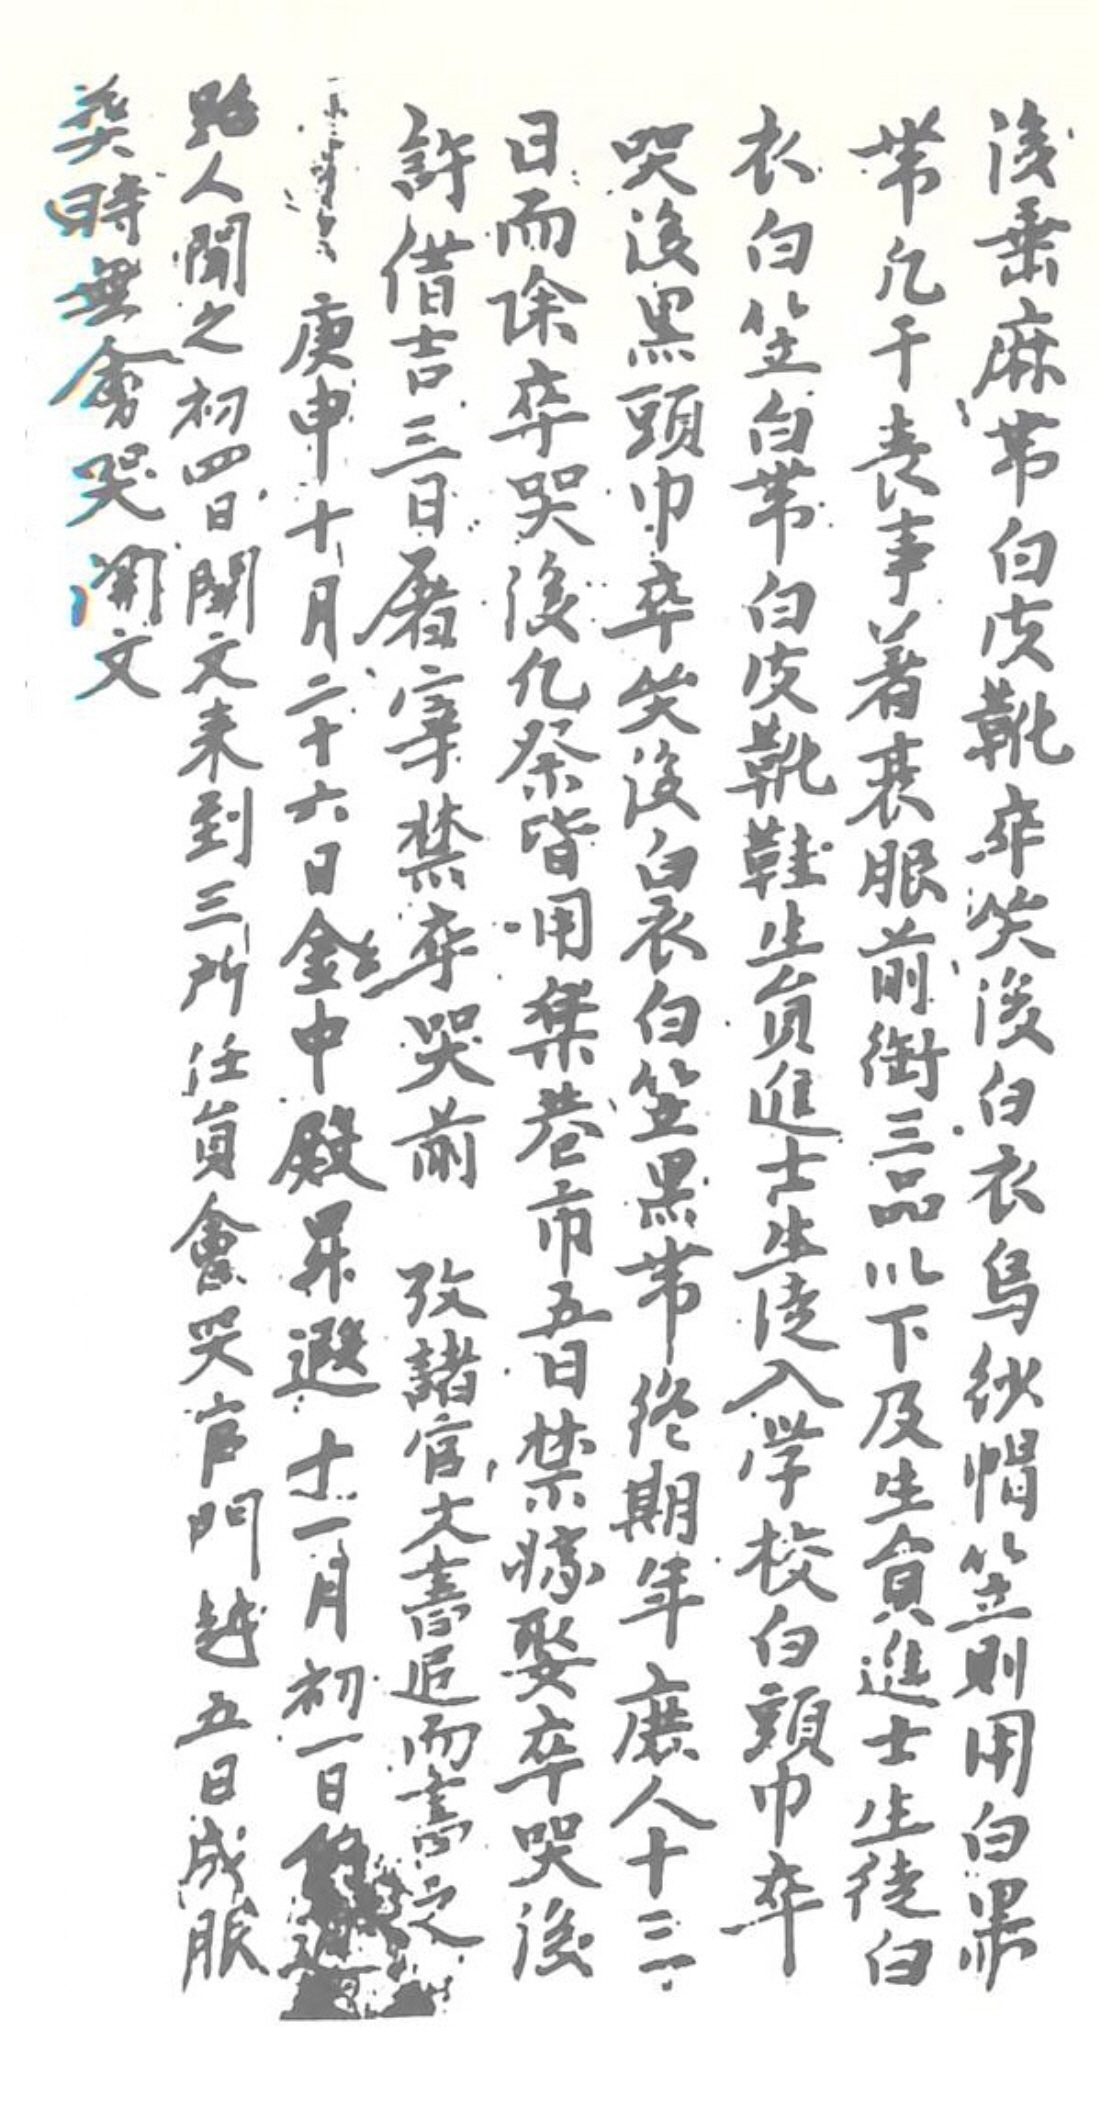 後垂麻帯白皮靴卒哭後白衣烏紗帽笠則用白黒
帯凡干喪事著衰服前銜三品以下及生員進士生徒白
衣白笠白帯白皮靴鞋生員進士生徒入学校白頭巾卒
哭後黒頭巾卒哭後白衣白笠黒帯終期年庶人十三
日而除卒哭後凡祭皆用樂巷市五日禁嫁娶卒哭後
許借吉三日屠宰禁卒哭前 攷諸官文書追而書之
庚申十月二十六日金中殿昇遐十一月初一日
路人聞之初四日関文来到三所任員會哭官門越五日成服
葬時無會哭關文